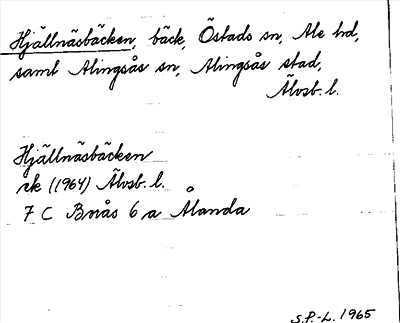 Hjällnäsbäcken, bäck, Östads sn, Ale hd,
samt Alingsås sn, Alingsås stad,
Älvsb. l.
Hjällnäsbäcken
ek (1964) Älvsb. l.
7 C Borås 6 a Ålanda
S.P.-L. 1965